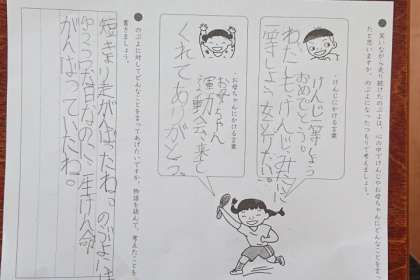 ● 笑いながら走り続けたのぶよは、心の中でけんじやお母ちゃんにどんなことを言っ
たと思いますか。のぶよになったつもりで考えましょう。
・けんじにかける言葉
けんじ一等しょう
おめでとう。
わたしもけんじみたいに
一等しょう女子りたい。
・お母ちゃんにかける言葉
お母ちゃん
運動会、来て
くれてありがとう。
● のぶよに対してどんなことを言ってあげたいですか。物語を読んで、考えたことを
書きましょう。
がんばったね。のぶよは
なのに、一生けん命
がんばっていたね。